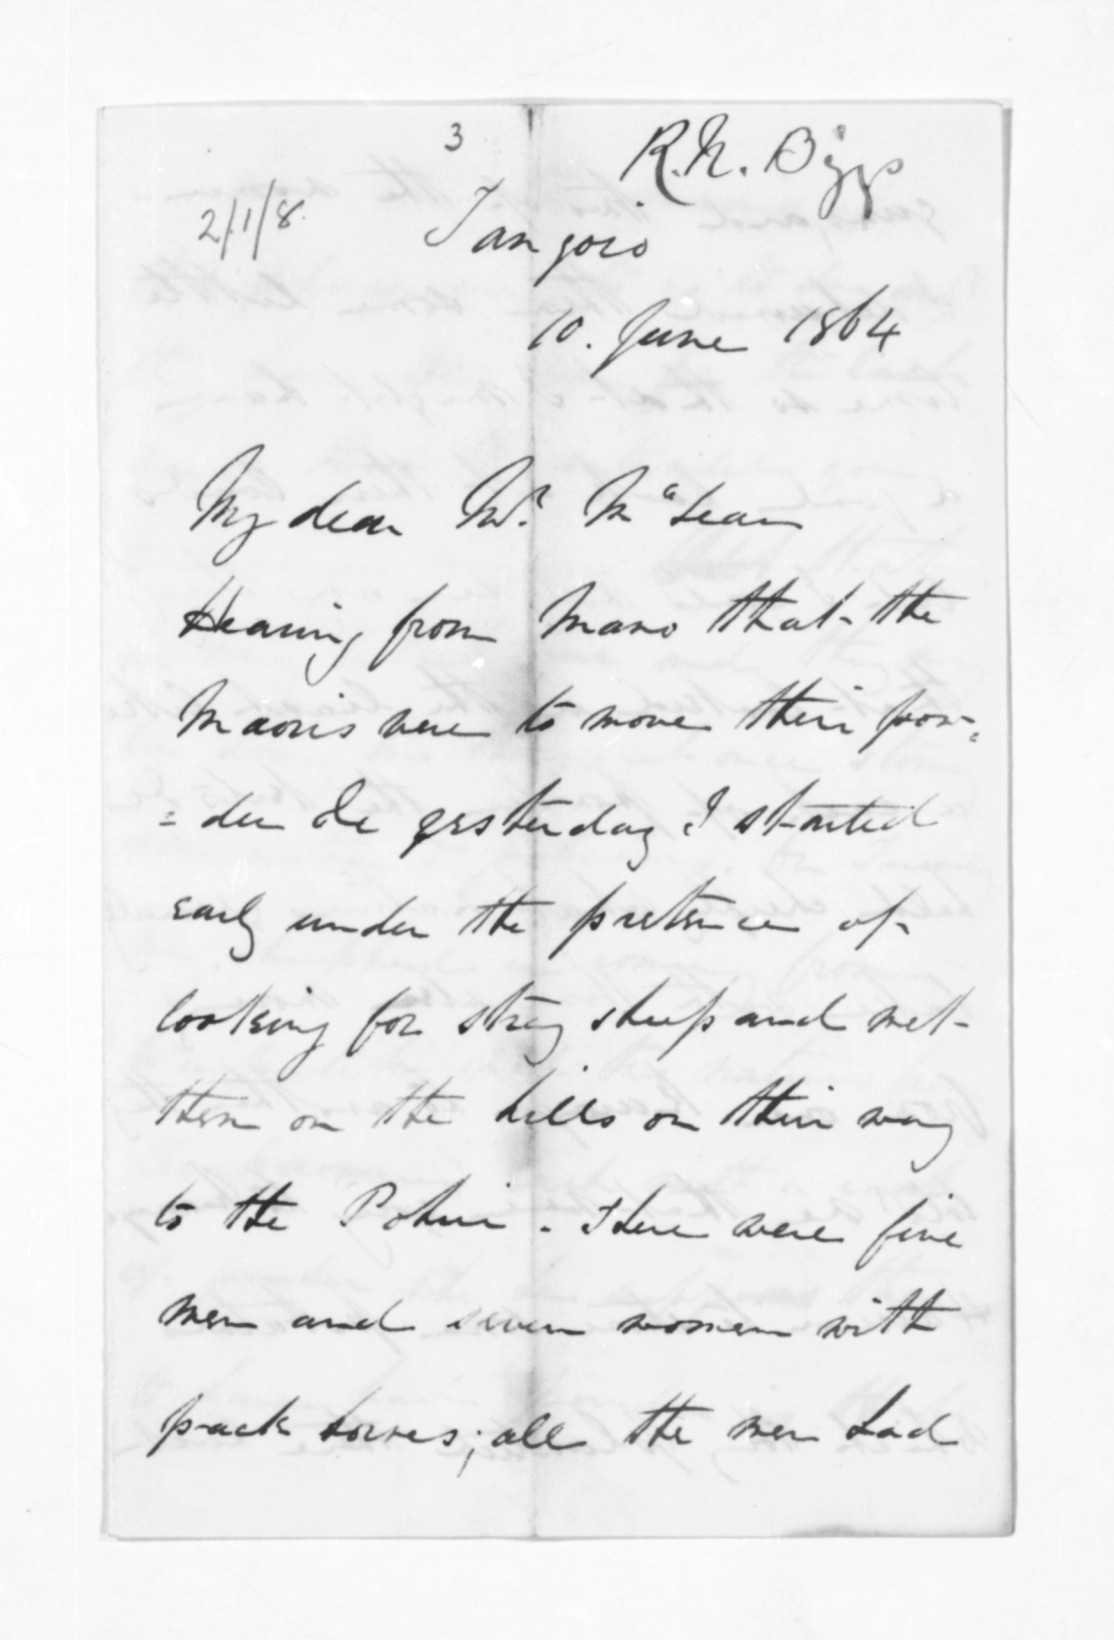 3
R.N. Biggs
2/1/8
Tangoio
10. June 1864
My dear Mr. McLean
Hearing from Mano that the
Maoris were to move their pow=
=der &c yesterday I started
early under the pretence of
looking for stray sheep and met
them on the hills on their way
to the Pohui. There were five
men and seven women with
pack horses; all the men had